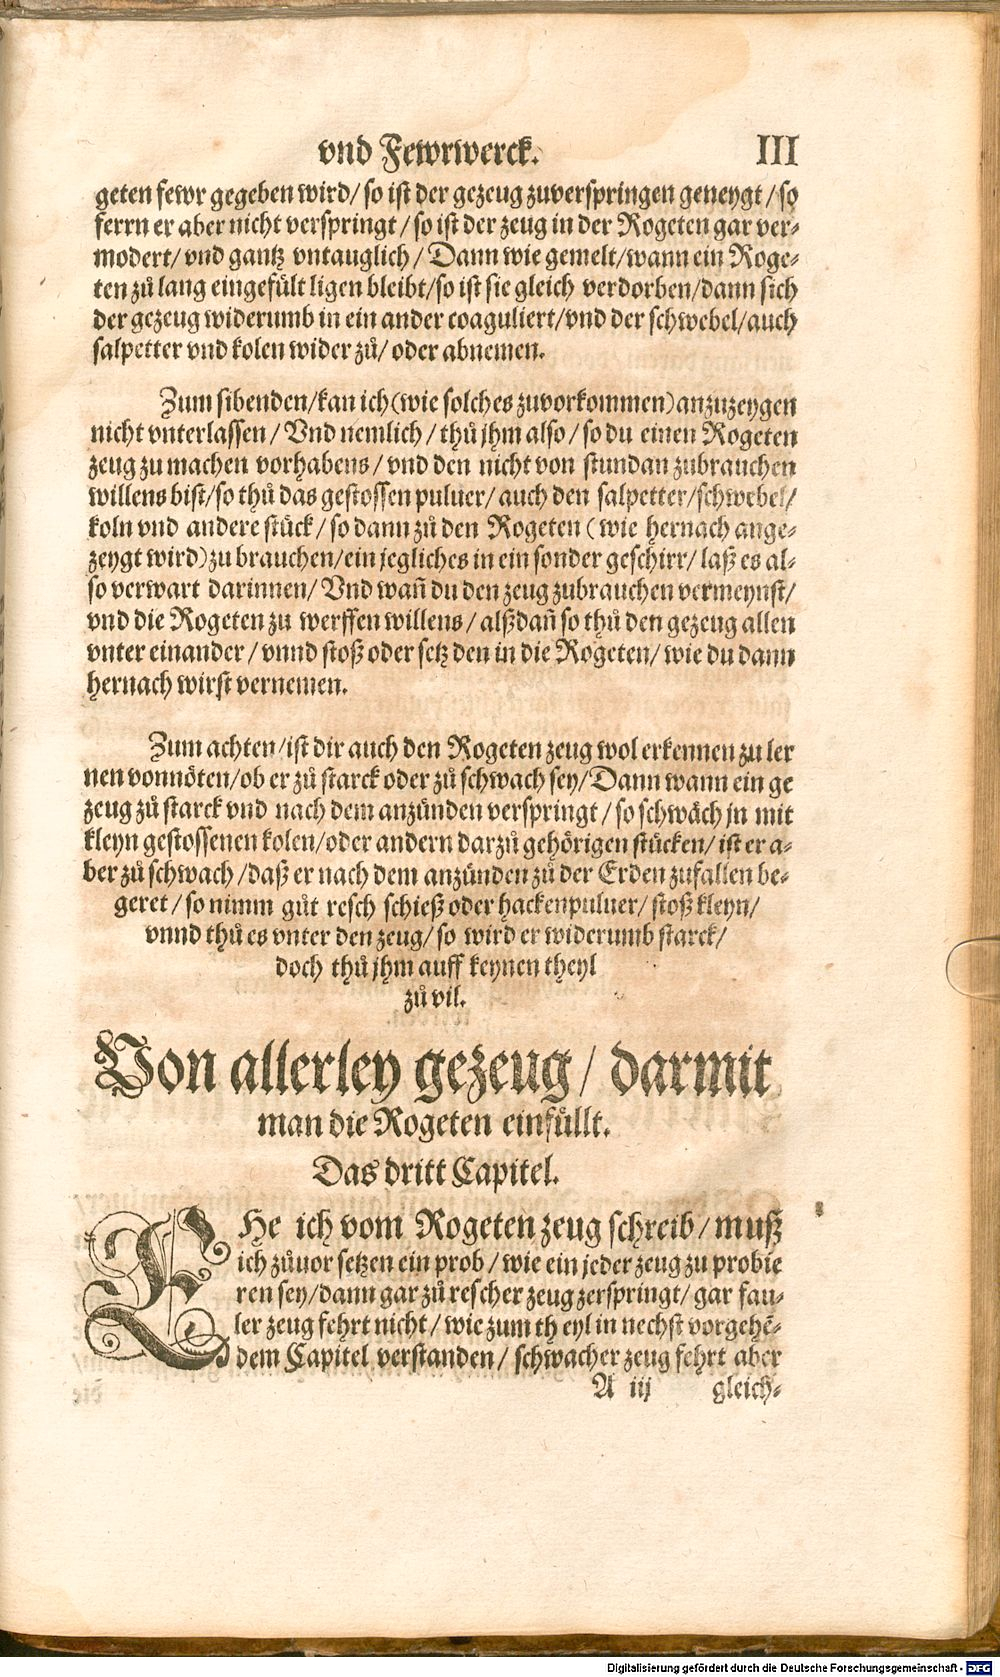 vnd Fewrwerck. III
geten fewr gegeben wird/ so ist der gezeug zuverspringen geneygt / so
ferrn er aber nicht verspringt / so ist der zeug in der Rogeten gar ver⸗
modert/ vnd gantz vntauglich / Dann wie gemelt/ wann ein Roge⸗
ten zů lang eingefült ligen bleibt/ so ist sie gleich verdorben/ dann sich
der gezeug widerumb in ein ander coaguliert/ vnd der schwebel/ auch
salpetter vnd kolen wider zů/ oder abnemen.
Zum sibenden/ kan ich (wie solches zuvorkommen) anzuzeygen
nicht vnterlassen / Vnd nemlich / thů jhm also / so du einen Rogeten
zeug zu machen vorhabens / vnd den nicht von stundan zubrauchen
willens bist/ so thů das gestossen puluer/ auch den salpetter/ schwebel/
koln vnd andere stück / so dann zů den Rogeten ( wie hernach ange⸗
zeygt wird) zu brauchen/ ein jegliches in ein sonder geschirr/ laß es al⸗
so verwart darinnen/ Vnd wañ du den zeug zubrauchen vermeynst/
vnd die Rogeten zu werffen willens / alßdañ so thů den gezeug allen
vnter einander / vnnd stoß oder setz den in die Rogeten/ wie du dann
hernach wirst vernemen.
Zum achten / ist dir auch den Rogeten zeug wol erkennen zu ler
nen vonnöten/ ob er zů starck oder zů schwach sey/ Dann wann ein ge
zeug zů starck vnd nach dem anzünden verspringt / so schwäch jn mit
kleyn gestossenen kolen/ oder andern darzů gehörigen stücken/ ist er a⸗
ber zů schwach / daß er nach dem anzünden zů der Erden zufallen be⸗
geret / so nimm gůt resch schieß oder hackenpuluer/ stoß kleyn/
vnnd thů es vnter den zeug/ so wird er widerumb starck/
doch thů jhm auff keynen theyl
zů vil.
Von allerley gezeug / darmit
man die Rogeten einfüllt.
Das dritt Capitel.
EHe ich vom Rogeten zeug schreib / muß
ich zůuor setzen ein prob / wie ein jeder zeug zu probie
ren sey/ dann gar zů rescher zeug zerspringt/ gar fau⸗
ler zeug fehrt nicht / wie zum theyl in nechst vorgehē⸗
dem Capitel verstanden / schwacher zeug fehrt aber
A iij gleich⸗
Digitalisierung gefördert durch die Deutsche Forschungsgemeinschaft - DFG